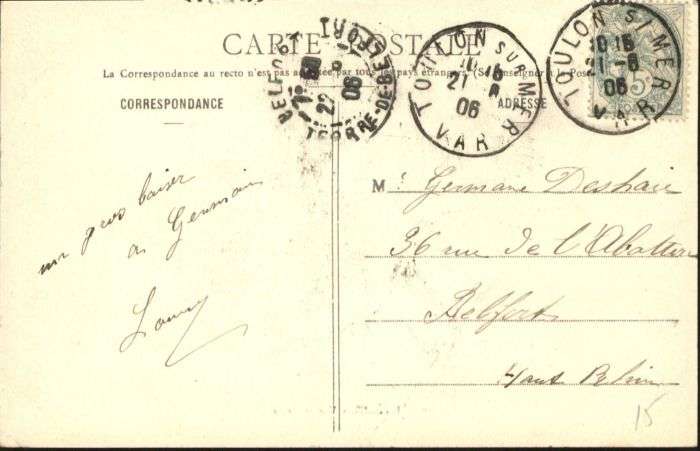 CARTE POSTALE
La Correspondance au recto n'est pas acceptée par tous les pays étrangers. (Se renseigner à la Poste)
CORRESPONDANCE
ADRESSE
BELFORT
7 30
22 8
06
TERRE-DE-BELFORT
TOULON SUR MER
10 15
21 8
06
VAR
TOULON S/MER
10 15
21 -8
06
VAR
5c
un gros baiser
à Germain
M
Germane Deshaie
36 rue de l'Abattoir
Belfort
Haut Rhin
15